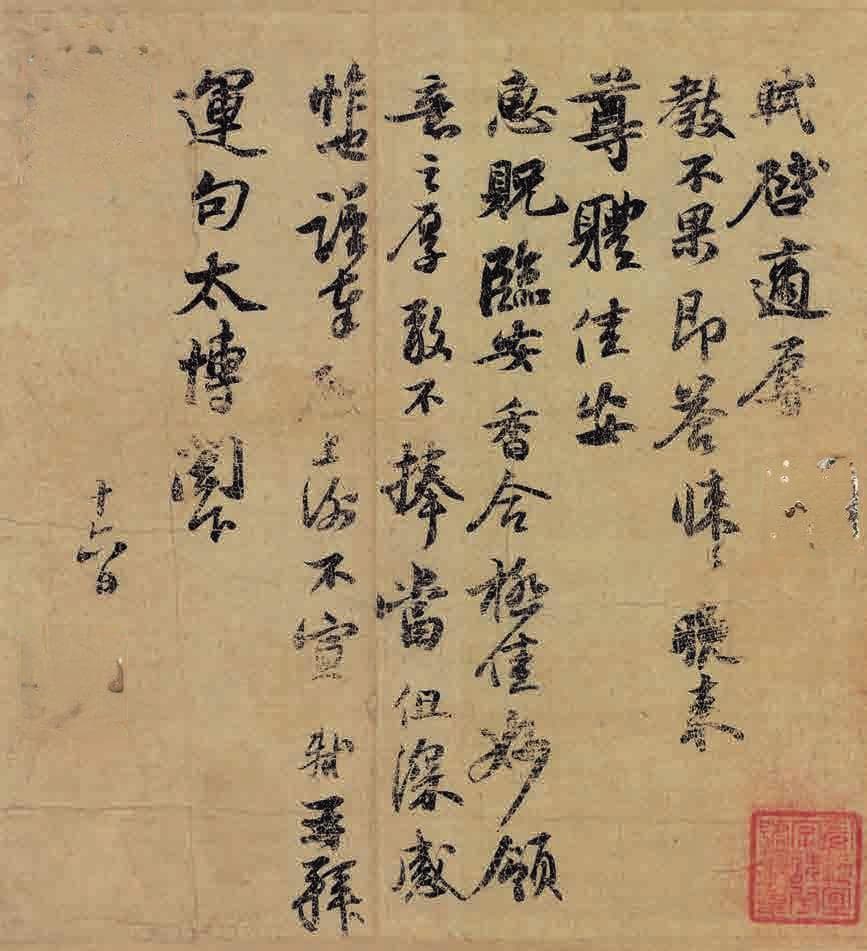 軾啓適辱
教不果即答悚悚曉來
尊體佳安
惠貺臨安香合極佳妙領
意之厚敢不捧當但深感
怍也謹奉啓上謝不宣軾再拜
運句太博閣下
十六日